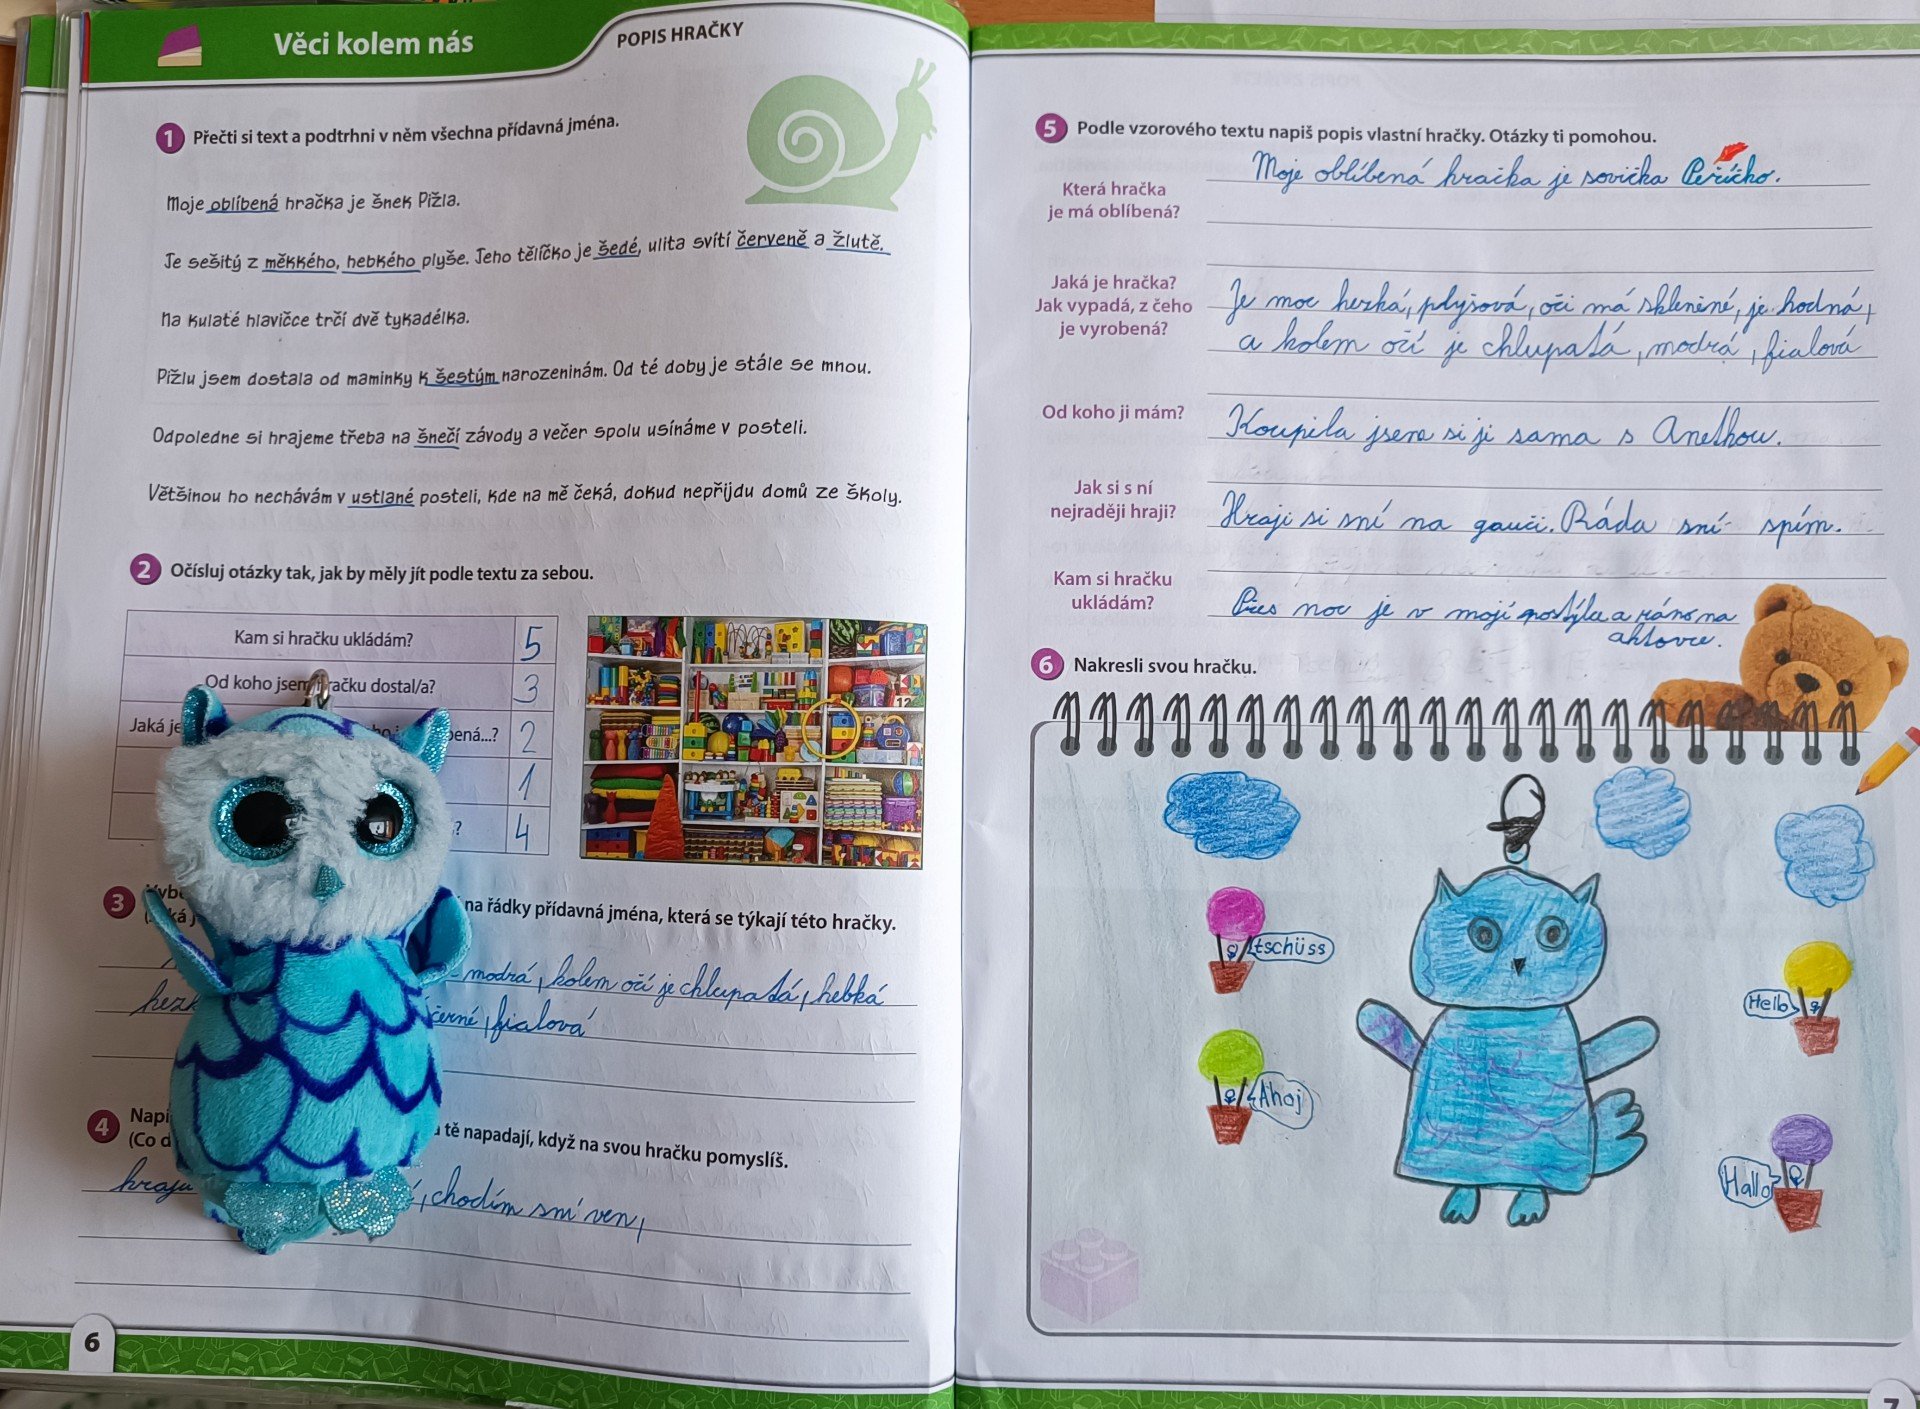 Věci kolem nás
POPIS HRAČKY
1 Přečti si text a podtrhni v něm všechna přídavná jména.
Moje oblíbená hračka je šnek Pížla.
Je sešitý z měkkého, hebkého plyše. Jeho tělíčko je šedé, ulita svítí červeně a žlutě.
Na kulaté hlavičce trčí dvě tykadélka.
Pížlu jsem dostala od maminky k šestým narozeninám. Od té doby je stále se mnou.
Odpoledne si hrajeme třeba na šnečí závody a večer spolu usínáme v posteli.
Většinou ho nechávám v ustlané posteli, kde na mě čeká, dokud nepřijdu domů ze školy.
2 Očísluj otázky tak, jak by měly jít podle textu za sebou.
Kam si hračku ukládám? 5
Od koho jsem hračku dostal/a? 3
Jaká je 2
1
4
3
na řádky přídavná jména, která se týkají této hračky.
modrá, kolem očí je chlupatá, hebká
černé, fialová
4
tě napadají, když na svou hračku pomyslíš.
(Co
chodím sní ven,
6
5 Podle vzorového textu napiš popis vlastní hračky. Otázky ti pomohou.
Která hračka
je má oblíbená?
Moje oblíbená hračka je sovička Peříčko.
Jaká je hračka?
Jak vypadá, z čeho
je vyrobená?
Je moc hezká, plyšová, oči má skleněné, je hodná,
a kolem očí je chlupatá, modrá, fialová
Od koho ji mám?
Koupila jsem si ji sama s Anethou.
Jak si s ní
nejraději hraji?
Hraji si sní na gauči. Ráda sní spím.
Kam si hračku
ukládám?
Přes noc je v mojí postýlce a ráno na
6 Nakresli svou hračku.
12
tschüss
Hello
Ahoj
Hallo
7